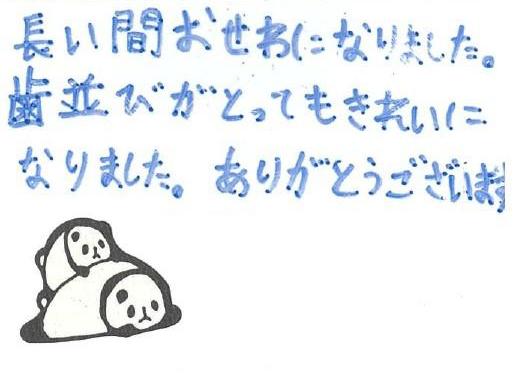 長い間おせわになりました。
歯並びがとってもきれいに
なりました。ありがとうございます